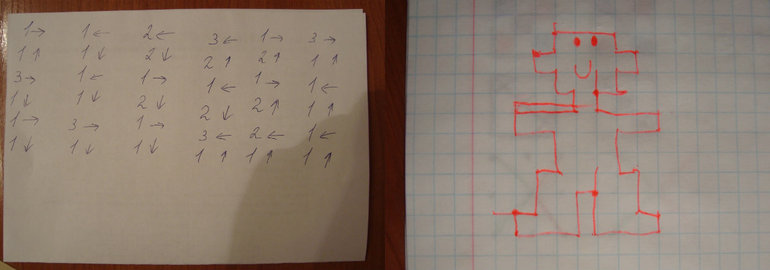 1→ 1← 2← 3← 1→ 3→
1↑ 1↓ 2↓ 2↑ 2↑ 1↑
3→ 1← 1→ 1← 1→ 1←
1↓ 1↓ 2↓ 2↓ 2↑ 1↑
1→ 3→ 1→ 3← 2← 1←
1↓ 1↓ 1↓ 1↑ 1↑ 1↑